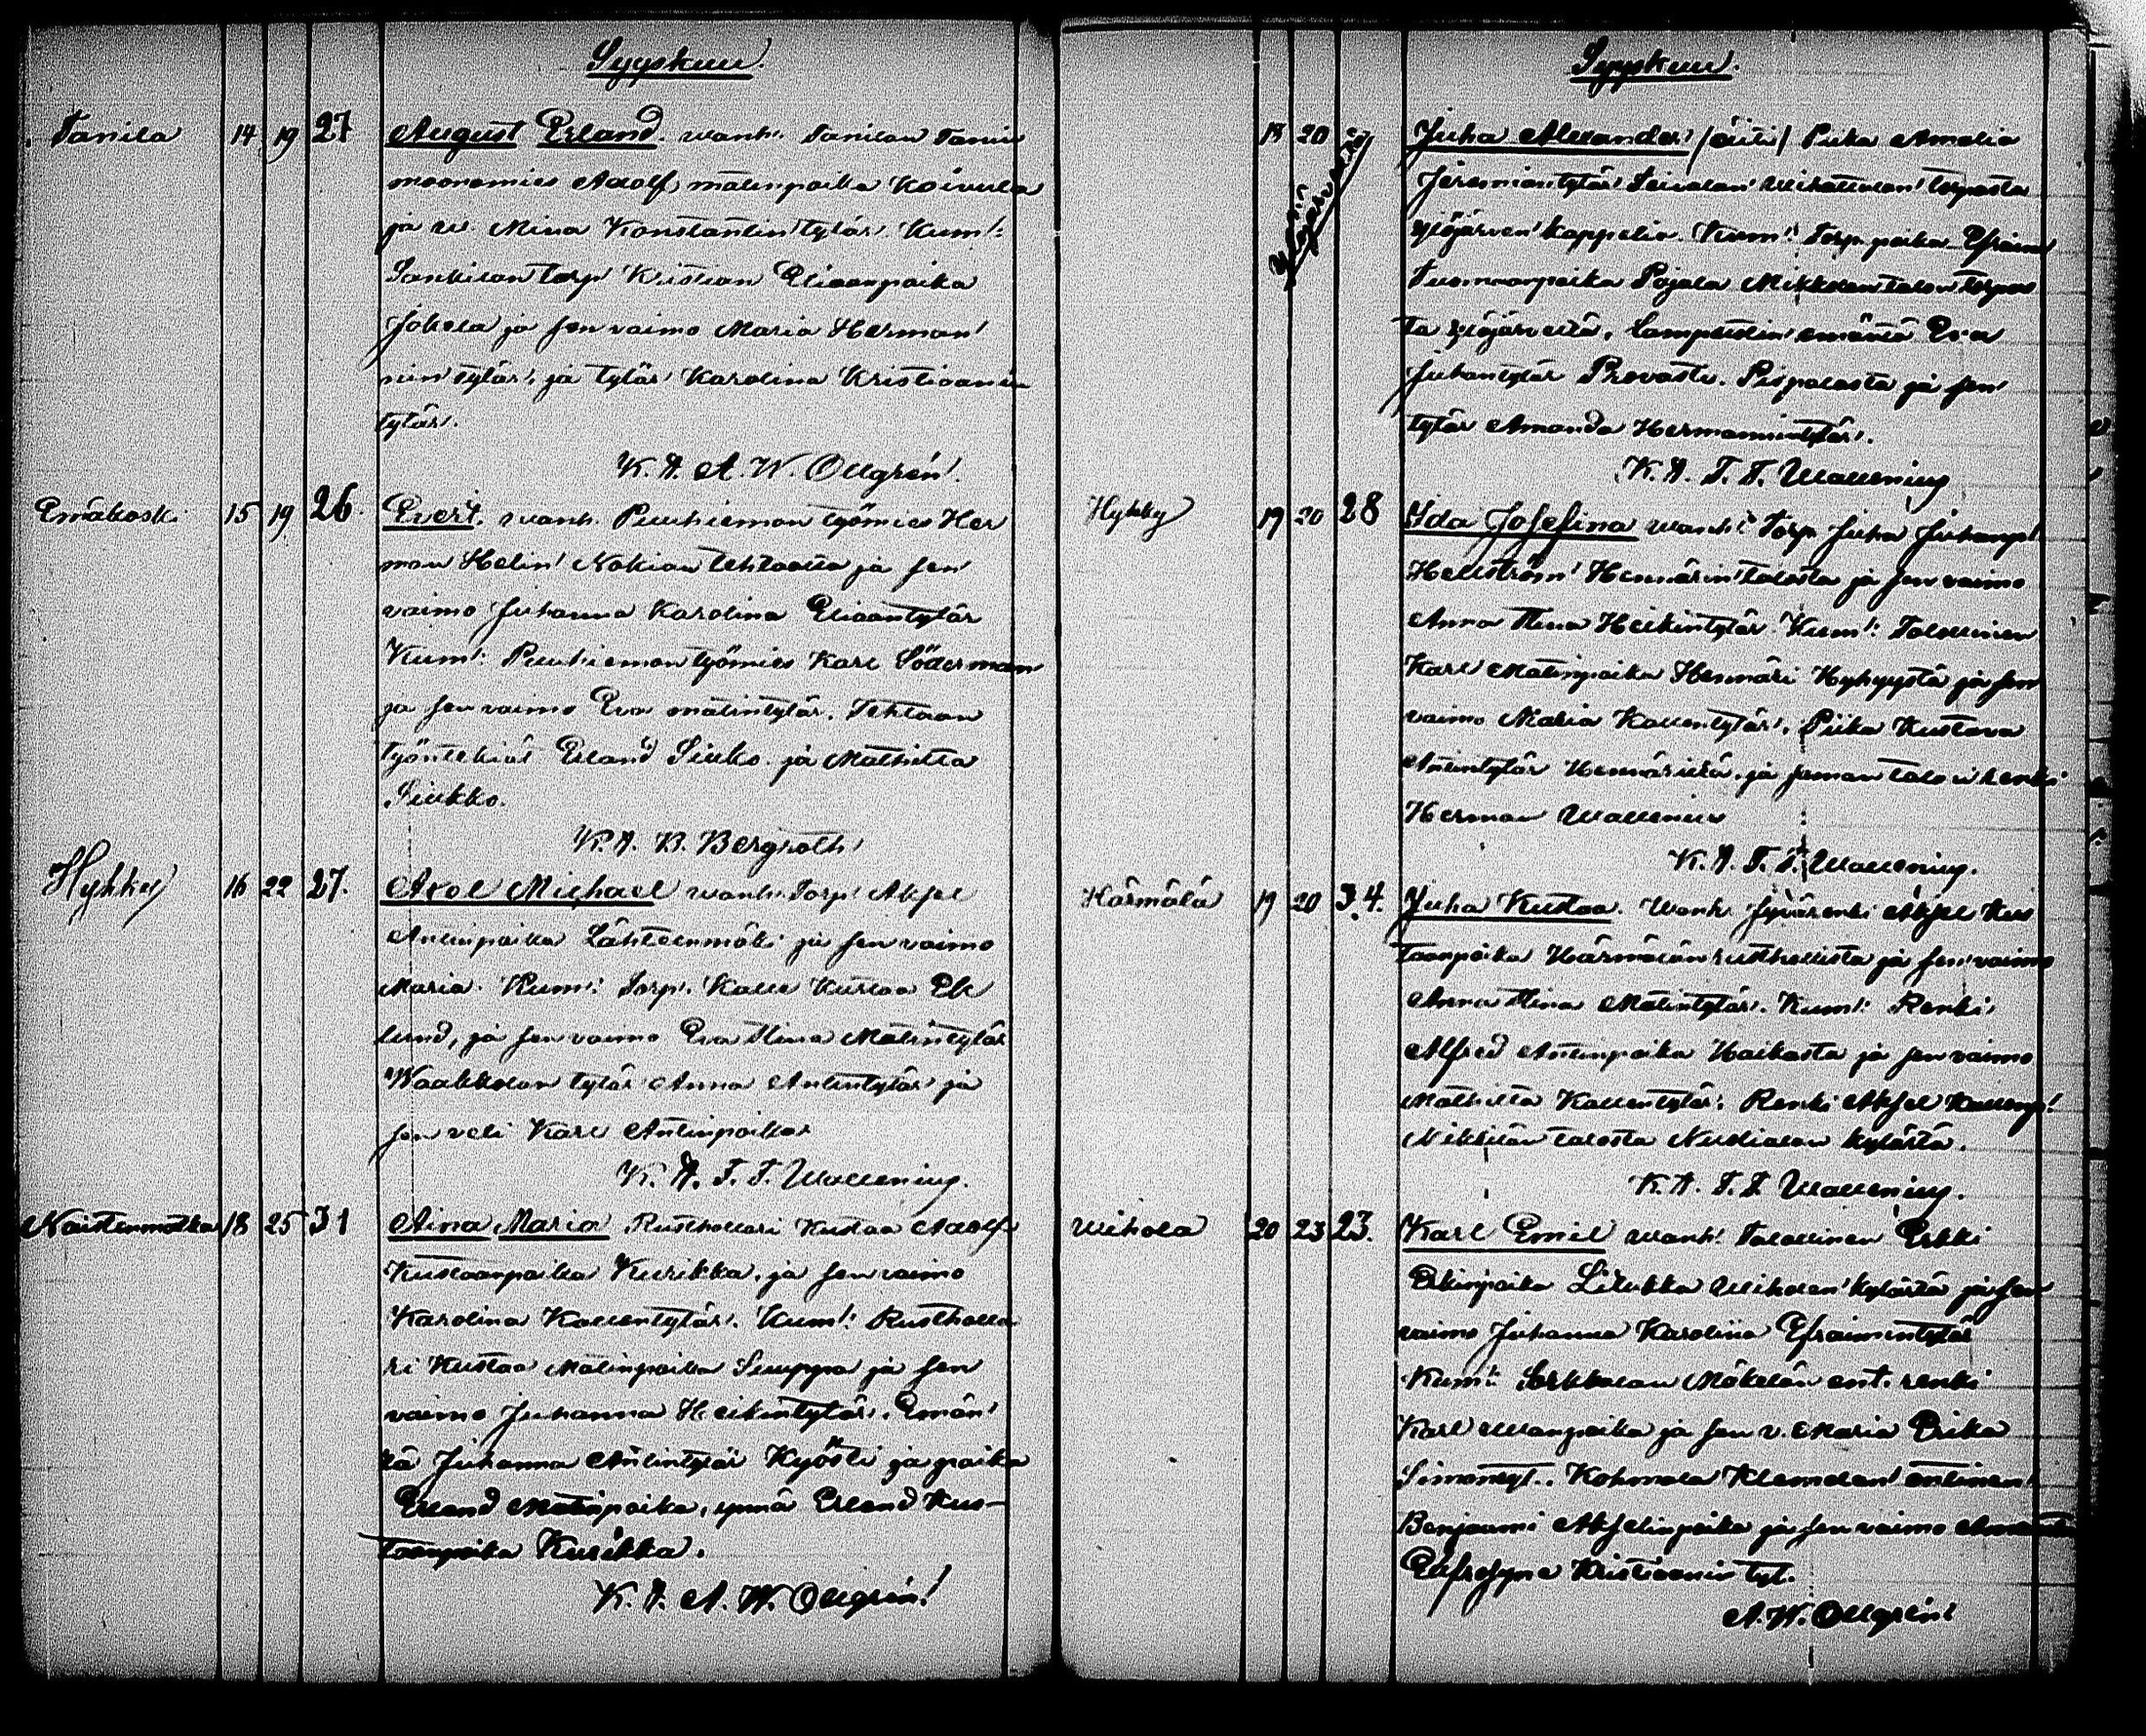 Syyskuu.
Tanila 14 19 27 August Erland. wanh: Tanilan Tanin
moonamies Adolf matinpoika Koivula
ja w. Mina Konstantintytär. Kum:
Sankilan torp Kristian Eliaanpoika
Jokela ja sen vaimo Maria Herman
nintytär, ja tytär Karolina Kristiaanin
tytär.
K. A. A. W. Ollgrén.
Emäkoski 15 19 26. Evert. wanh. Puuhiomon työmies Her
man Helin Nokian tehtaalta ja sen
vaimo Juhanna Karolina Eliaantytär
Kum: Puuhiomon työmies Karl Söderman
ja sen vaimo Eva matintytär. Tehtaan
työntekiät Erland Siukko ja Mathilta
Siukko.
K. A. B. Bergroth
Hyhky 16 22 27. Axel Michael wanh: Torp. Aksel
Antinpoika Lähteenmäki ja sen vaimo
Maria. Kum: Torp. Kalle Kustaa Ek
lund, ja sen vaimo Eva Mina Matintytär
Waakkolan tytär Anna Antintytär ja
sen veli Karl Antinpoika
K. A. F. F. Wallenius.
Naistenmatka 18 25 31 Aina Maria Rusthollari Kustaa Adolf
Kustaanpoika Kurikka, ja sen vaimo
Karolina Kallentytär. Kum: Rustholla
ri Kustaa Matinpoika Suuppa ja sen
vaimo Juhanna Heikintytär. Emän
tä Juhanna Antintytär Kyösti ja poika
Erland Matinpoika, ynnä Erland Kus-
taanpoika Kurikka.
K. A. A. W. Ollgrén!
Syyskuu.
18 20 Juha Alexander (äiti) Piika Amalia
Jeremiantytär Siivolan torpasta
Ylöjärven kappelia. Kum: Torp. poika Efraim
Tuomaanpoika Pojala Mikkolan talon torpas
ta Ylöjärveltä, emäntä Eva
Juhantytär Provasti. Pispalasta ja sen
tytär Amanda Hermannintytär.
K. A. F. F. Wallenius
Hyhky 19 20 28 Ida Josefina wanh: Torp. Juha Juhanp.
Hellström Hennärin talosta ja sen vaimo
Anna Mina Heikintytär. Kum: Talollinen
Karl Matinpoika Hennäri Hyhystä ja sen
vaimo Maria Kallentytär. Piika Kustava
Antintytär Hennäriltä, ja saman talon renki
Herman Wallenius
K. A. F. F. Wallenius.
Härmälä 19 20 34. Juha Kustaa. Wanh. Jyvärenki Aksel Kus
taanpoika Härmälän rusthollista ja sen vaimo
Anna Mina Matintytär. Kum: Renki
Alfred Antinpoika Haikasta ja sen vaimo
Mathilta Kallentytär. Renki Aksel Kallenp.
Nikkilän talosta Nuolialan kylästä.
K. A. F. F. Wallenius.
Wihola 20 23 23. Karl Emil wanh. Talollinen Erkki
Erkinpoika Liukka Wiholan kylästä ja sen
vaimo Juhanna Karolina Efraimintytär
Kum: Sorkkalan Mäkelän ent. renki
Karl ja sen v. Maria Erika
Simontyt. Kohmala Klemolan entinen
Benjaami Akselinpoika ja sen vaimo
Eufrosyne Kristiaanin tyt.
A. W. Ollgrén